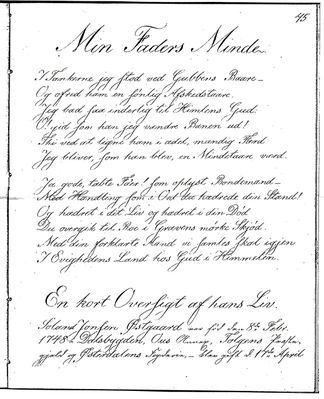 45
Min Faders Minde
I Tankerne jeg stod ved Gubbens Baare –
Og ofred ham en sønlig Afskedstaare.
Jeg bad saa inderlig til Himlens Gud:
O! gid som han jeg vandre Banen ud!
Thi ved at ligne ham i ædel, mandig Færd
Jeg bliver, som han blev, en Mindetaare værd.
Ja gode, tabte Fa'er! Som oplyst Bondemand –
Med Handling som i Ord du hædrede din Stand!
Og hædret i dit Liv og hædret i din Død
Du overgik til Roe i Gravens mørke Skjød.
Med din forklarte Aand vi samles skal igjen
I Evighedens Land hos Gud i Himmelen.
En kort Oversigt af hans Liv.
Simen Østgaard var fød den 8de Febr.
1748 Dalsbygden, Os Tolgens Præste-
gjeld og Østerdalens Fogderie – blev gift d 17de April